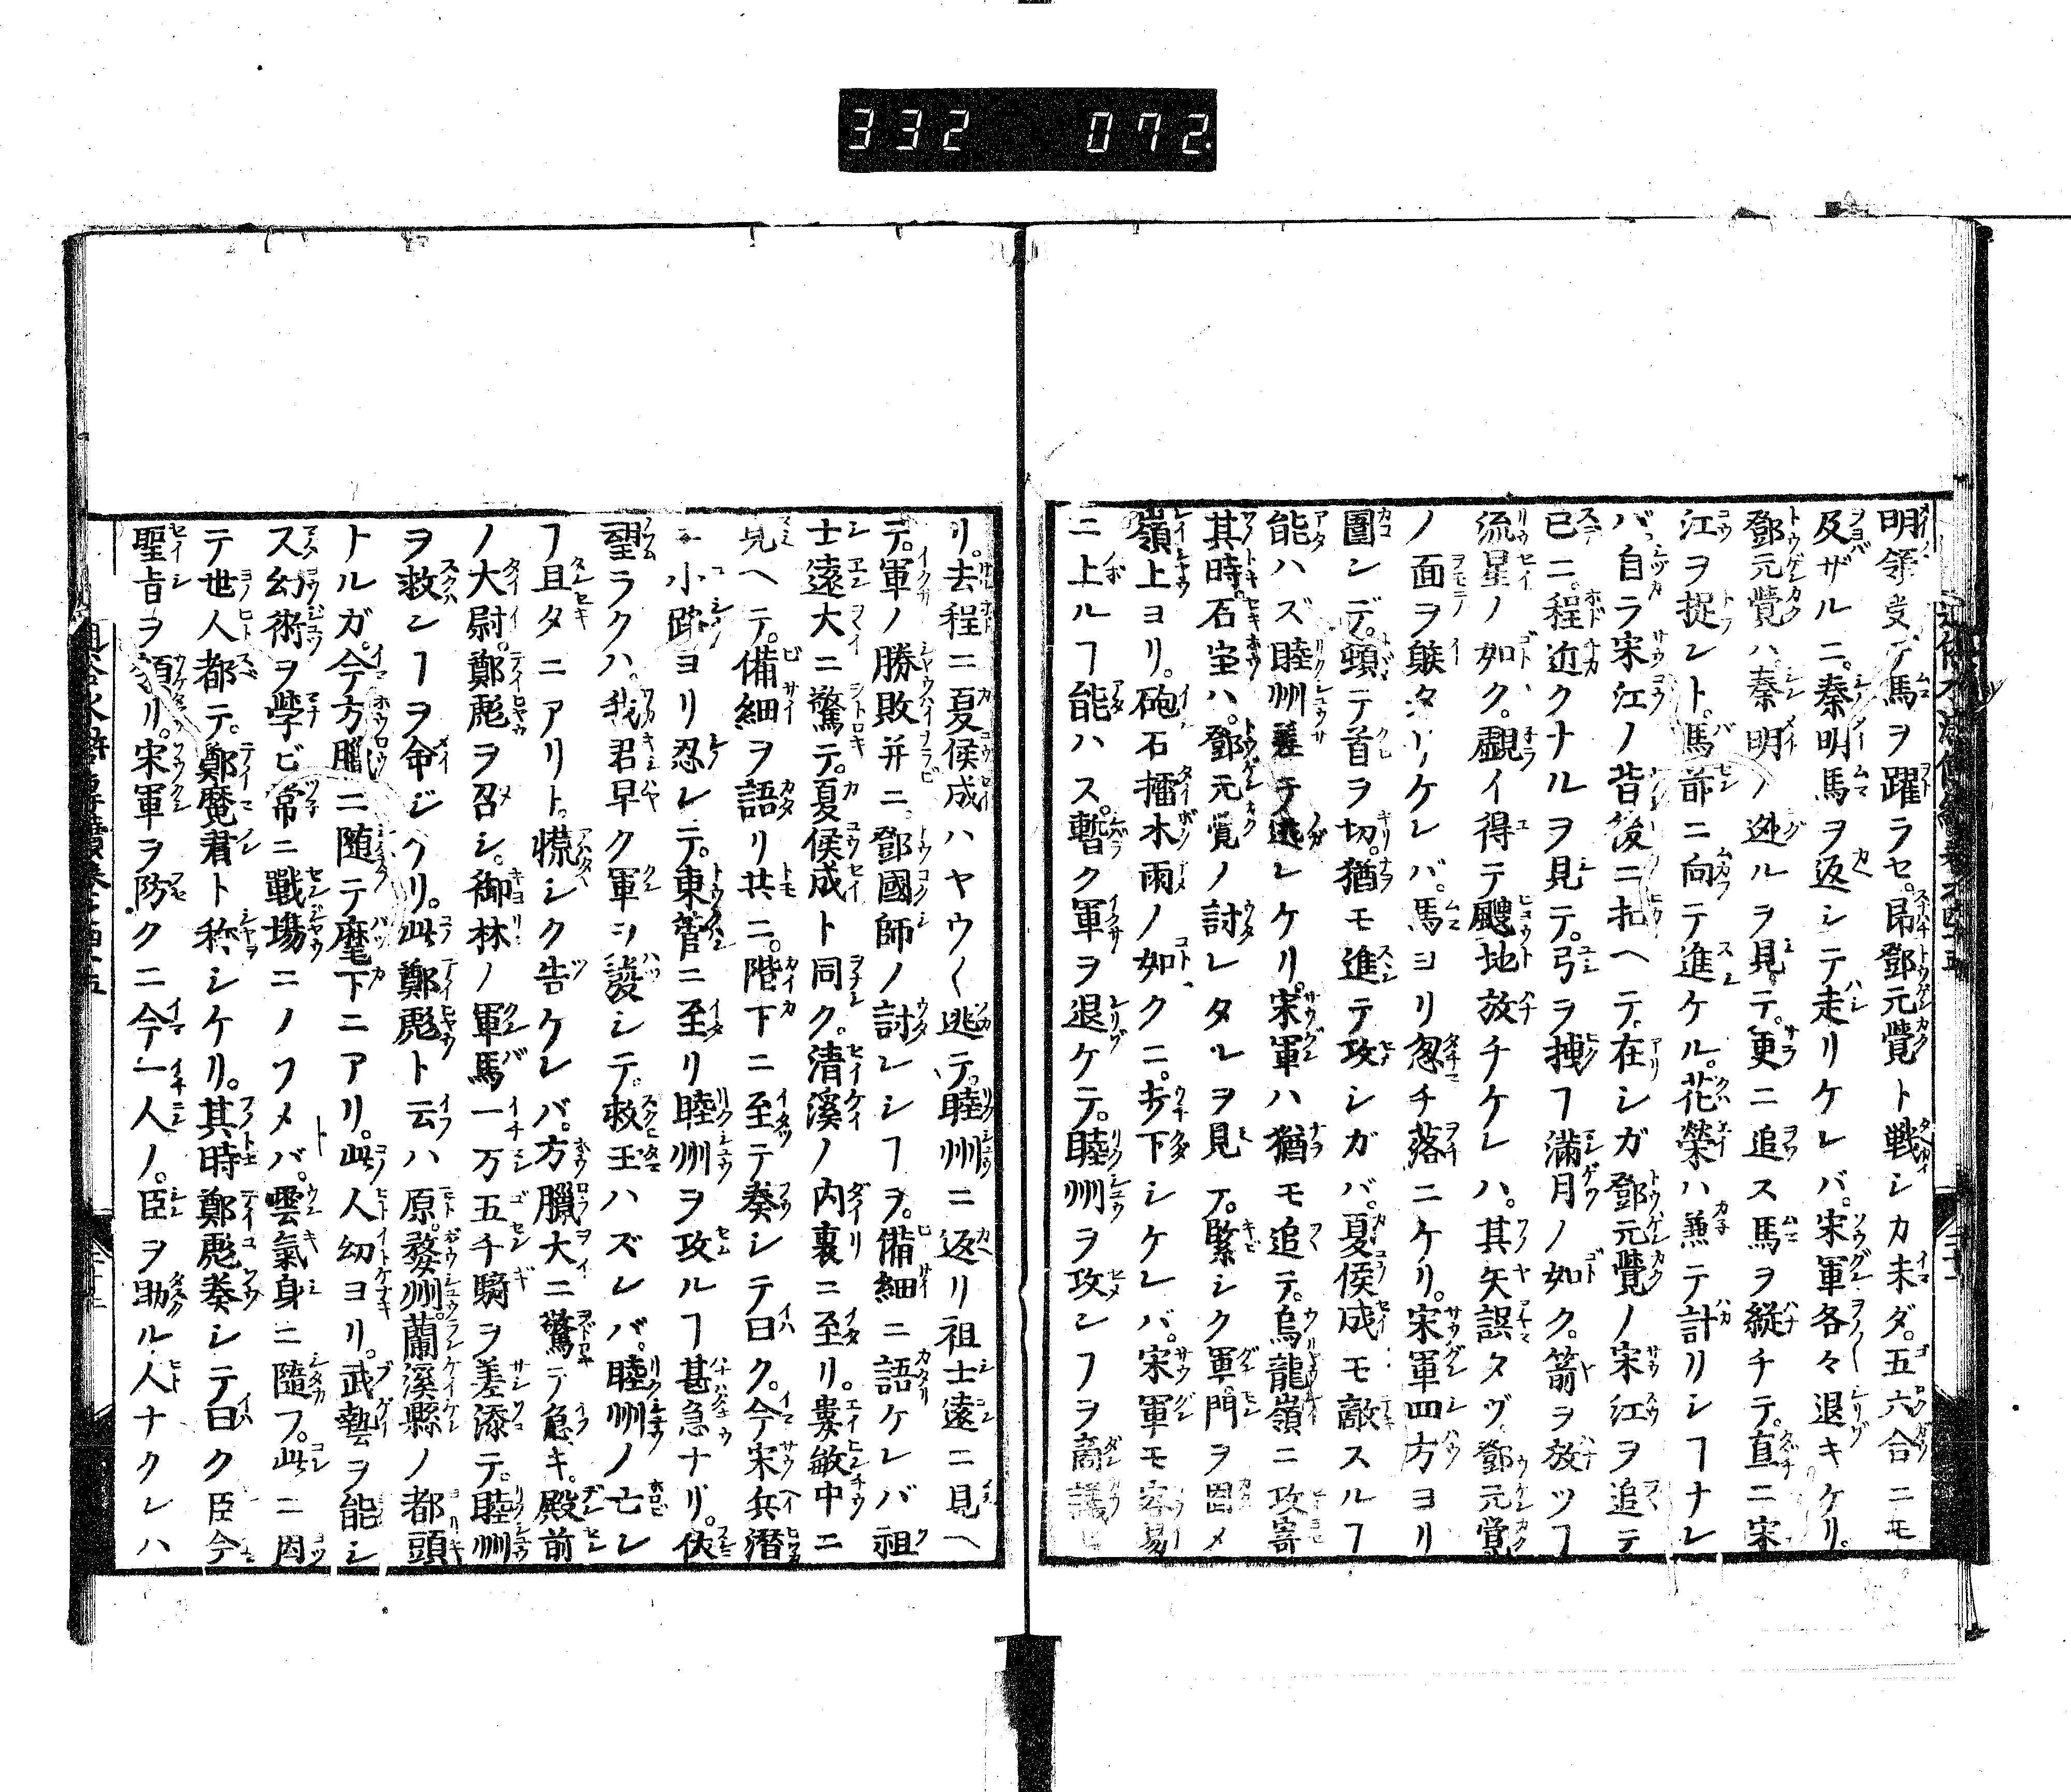 332 072
明領受テ馬ヲ躍ラセ。昂鄧元覺ト戰シカ未ダ。五六合ニモ
及ザルニ。秦明馬ヲ返シテ走リケレバ。宋軍各々退キケリ。
鄧元覺ハ秦明ノ迯ルヲ見テ。更ニ追ス馬ヲ縱チテ。直ニ宋
江ヲ捉ント。馬前ニ向テ進ケル。花榮ハ兼テ計リシヿナレ
バ。自ラ宋江ノ背後ニ扣ヘテ。在シガ鄧元覺ノ宋江ヲ追テ
已ニ。程近クナルヲ見テ。弓ヲ拽ヿ滿月ノ如ク。箭ヲ放ツヿ
流星ノ如ク。覷イ得テ颼地放チケレハ。其矢誤タヅ鄧元覺
ノ面ヲ躲タリケレバ。馬ヨリ忽チ落ニケリ。宋軍四方ヨリ
圍ンデ。頓テ首ヲ切。猶モ進テ攻シガバ。夏侯成モ敵スルヿ
能ハズ睦州差テ迯レケリ。宋軍ハ猶モ追テ。烏龍嶺ニ攻寄
其時石宝ハ。鄧元覺ノ討レタルヲ見テ。緊シク軍門ヲ固メ
嶺上ヨリ。砲石擂木雨ノ如クニ。打下シケレバ。宋軍モ容易
ニ上ルヿ能ハス。暫ク軍ヲ退ケテ。睦州ヲ攻ンヿヲ商議セ
リ。去程ニ夏侯成ハヤウ〱逃テ。睦州ニ返リ祖士遠ニ見ヘ
テ。軍ノ勝敗并ニ。鄧國師ノ討レシヿヲ。備細ニ語ケレバ祖
士遠大ニ驚テ。夏侯成ト同ク。清溪ノ内裏ニ至リ。婁敏中ニ
見ヘテ。備細ヲ語リ共ニ。階下ニ至テ奏シテ曰ク。今宋兵潜
ニ小路ヨリ忍レテ。東管ニ至リ睦州ヲ攻ルヿ甚急ナリ。伏
望ラクハ。我君早ク軍ヲ發シテ。救玉ハズレバ。睦州ノ亡レ
ヿ且タニアリト。慌シク告ケレバ。方臘大ニ驚テ急キ。殿前
ノ大尉。鄭彪ヲ召シ。御林ノ軍馬一万五千騎ヲ差添テ。睦州
ヲ救ンヿヲ命ジケリ。此鄭彪ト云ハ原。婺州。蘭溪縣ノ都頭
トルガ。今方臘ニ隨テ麾下ニアリ。此人幼ヨリ。武藝ヲ能シ
ス幻術ヲ學ビ常ニ戰場ニノソメバ。雲氣身ニ隨フ。此ニ因
テ世人都テ。鄭魔君ト称シケリ。其時鄭彪奏シテ曰ク臣今
聖旨ヲ領リ。宋軍ヲ防クニ今一人ノ。臣ヲ助ル人ナクレハ